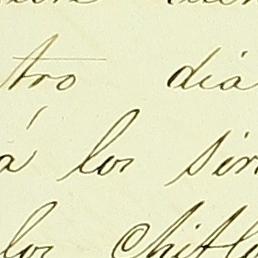 tro dia
á los sir
los chifl